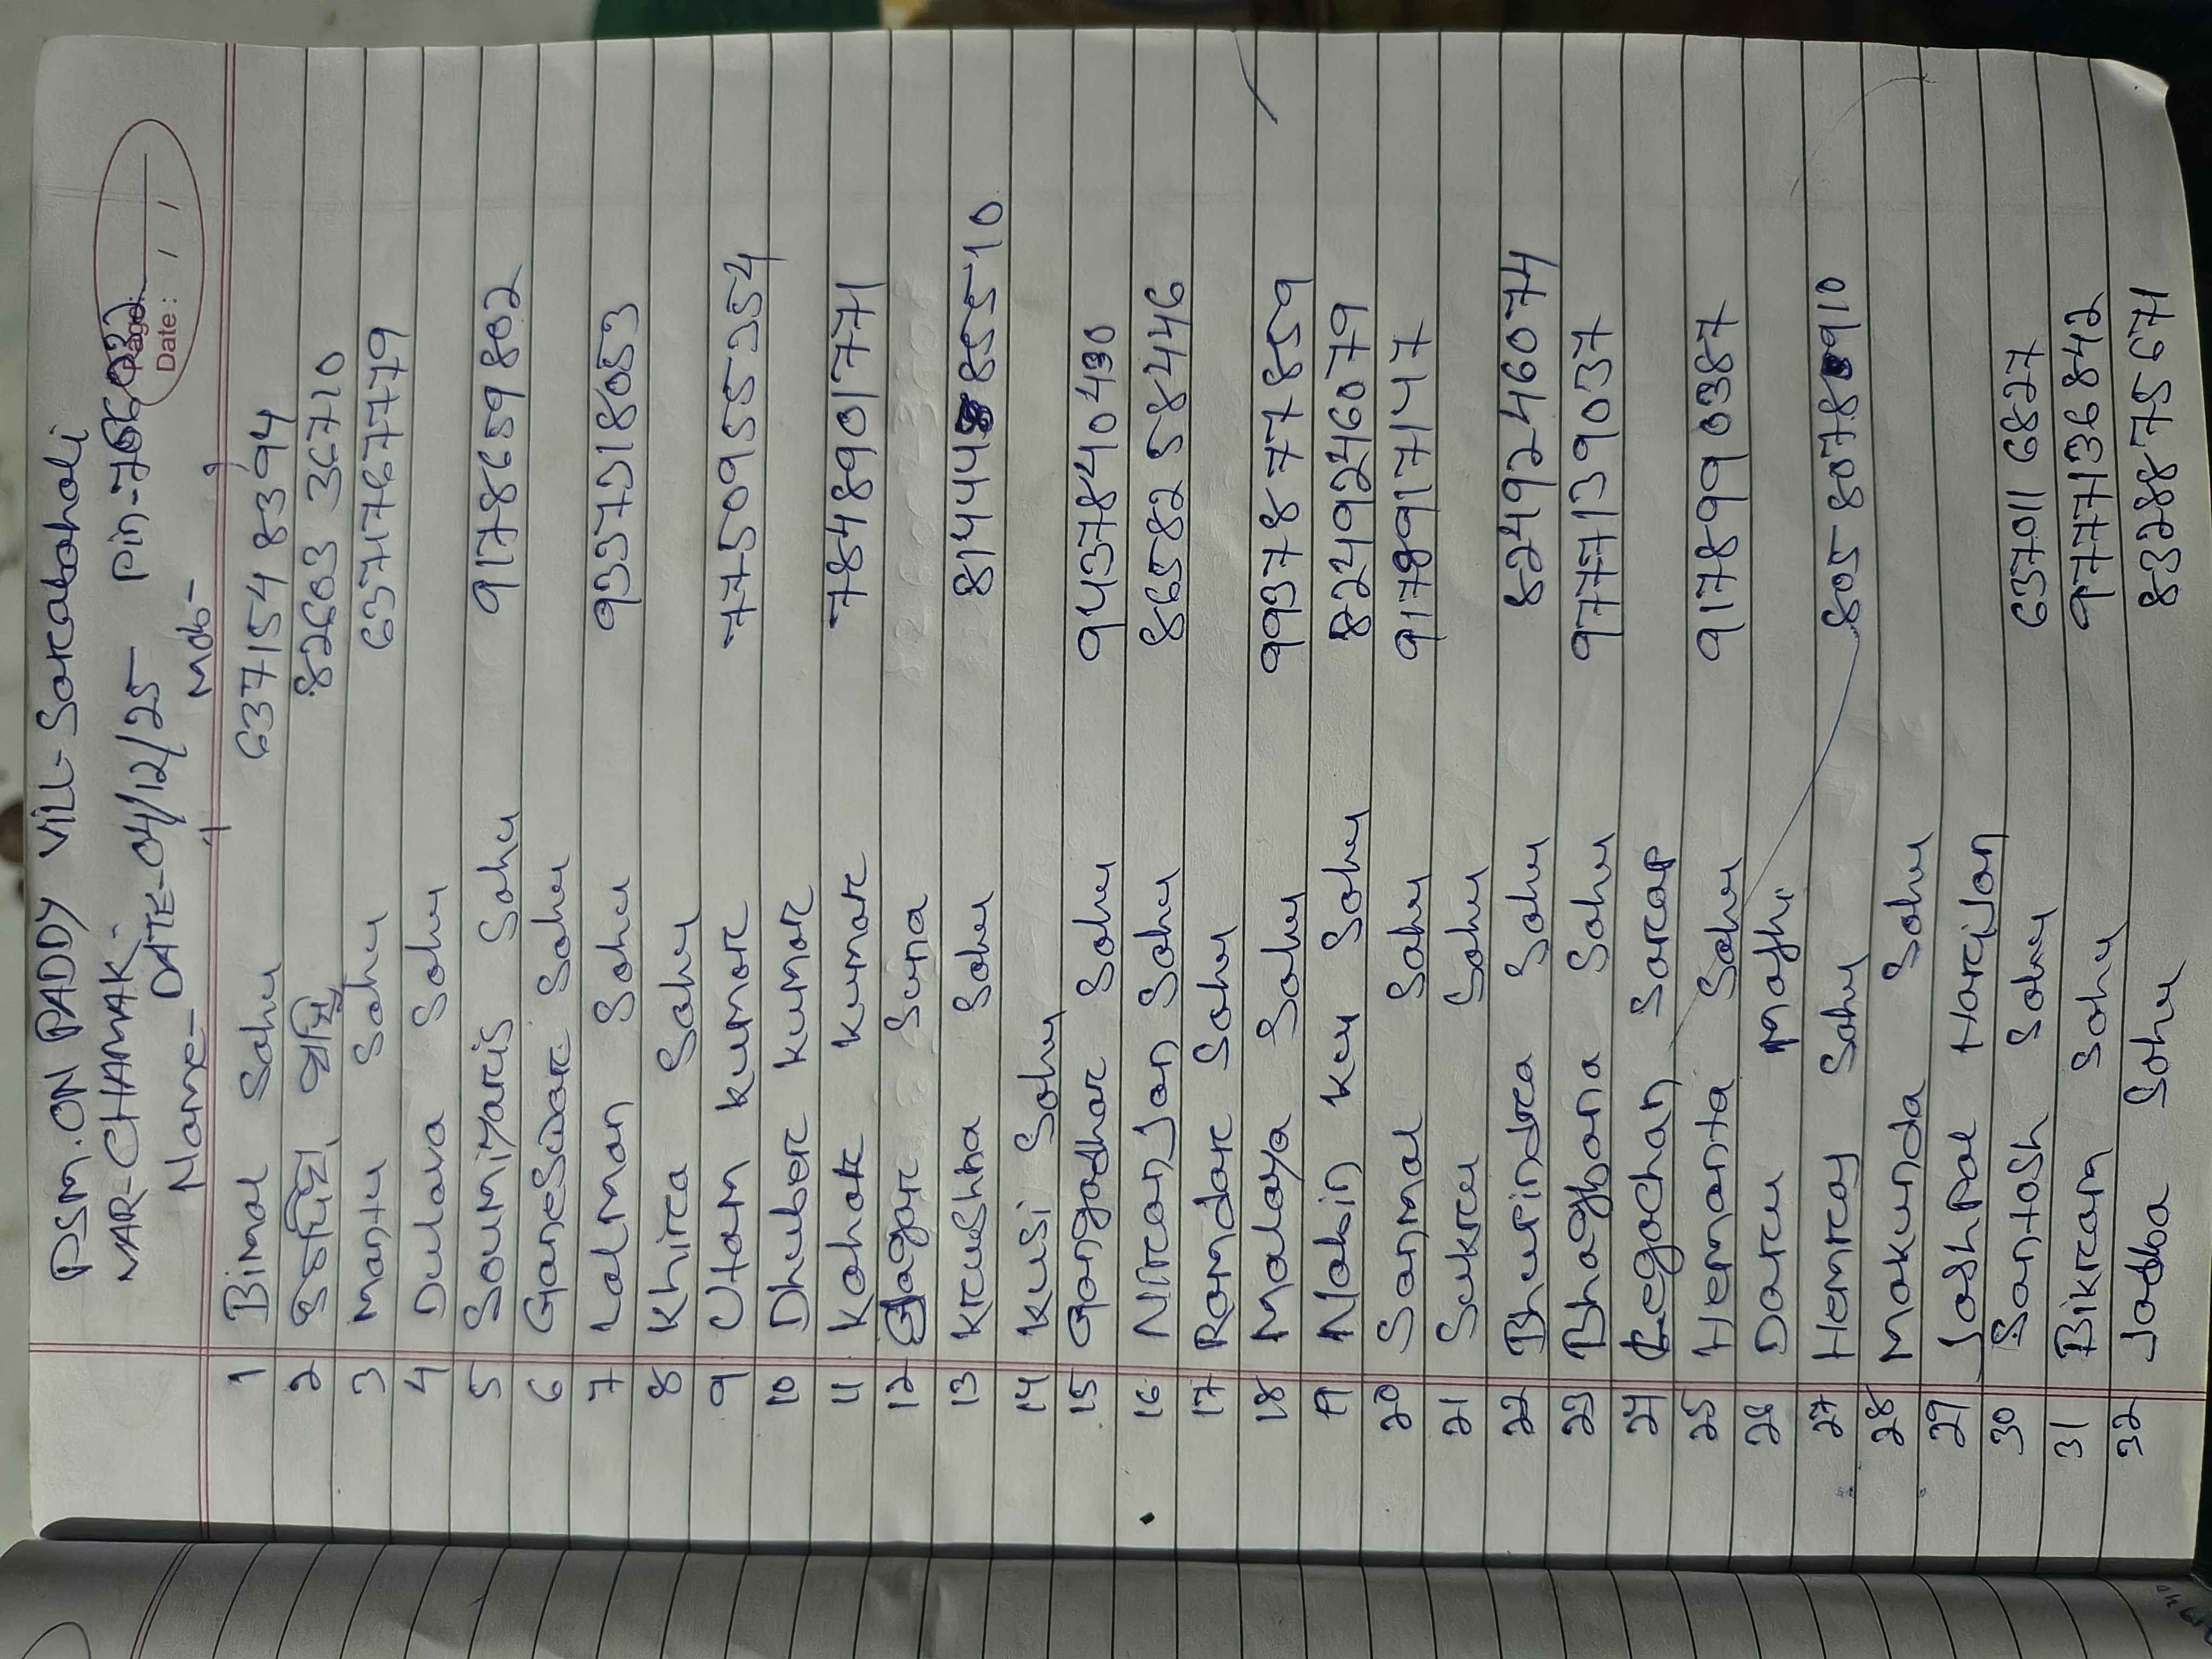 PSM.ON PADDY VILL-Sorcabahali
MAR-CHAMAK- Pin-766032
Page:
DATE-04/12/25
Date: / /
Name- Mob-
1 Bimal Sahu 6371548394
2 82603 36710
3 Mantu Sahu 6371767779
4 Dulava Sahu
5 Soumiyarcis Sahu 9178659802
6 GanesWarc Sahu
7 Lalman Sahu 9337318053
8 Khirca Sahu
9 Utam kumarc 7750955354
10 Dhuberc kumarc
11 Kahark kumarc 7848901771
12 Suna
13 krcushna Sahu 81444885510
14 Kusi Sahu
15 Gangadharc Sahu 9437840430
16 NircanJan Sahu 8658258446
17 Ramdarc Sahu
18 Malaya Sahu 9937877859
19 Nabin ku Sahu 8249246079
20 Sanmal Sahu 917891747
21 Sukru Sahu
22 Bhupindrca Sahu 8249246074
23 Bhagbana Sahu 9777139037
24 Legochan Sarcap
25 Hemanta Sahu 9178990387
26 Darcu Majhi
27 Hemrcaj Sahu 8058078910
28 Makunda Sahu
29 Jashpal HarciJan
30 Santosh Sahu 6370116827
31 Bikrcam Sahu 9777136842
32 Jadba Sahu 8328875671